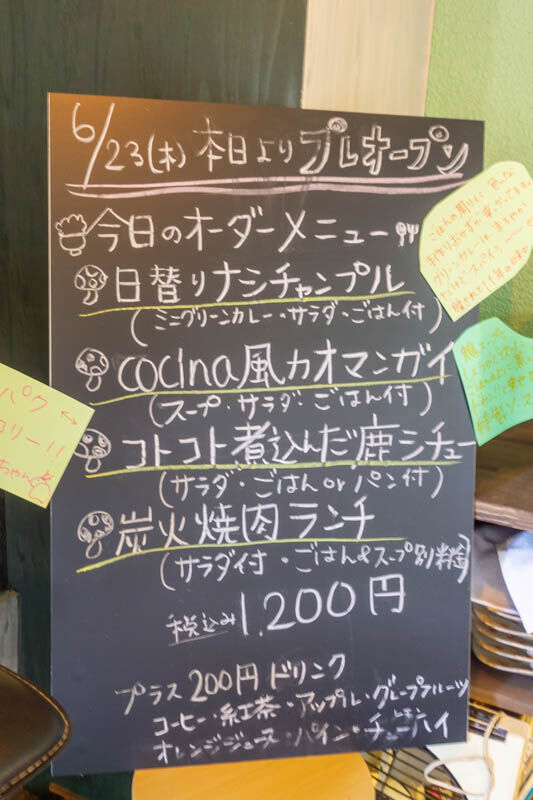 6/23(木) 本日よりプレオープン
今日のオーダーメニュー
日替りナシチャンプル
(ミニグリーンカレー・サラダ・ごはん付)
cocina風カオマンガイ
(スープ・サラダ・ごはん付)
コトコト煮込んだ鹿シチュー
(サラダ・ごはん or パン付)
炭火焼肉ランチ
(サラダ付・ごはん&スープ別料金)
税込み 1,200円
プラス 200円ドリンク
コーヒー・紅茶・アップル・グレープフルーツ
オレンジジュース・パイン・チューハイ
ごはんの周りに
手作りおかずが
グリーンカレーは
パク
リー!!
ちゃん